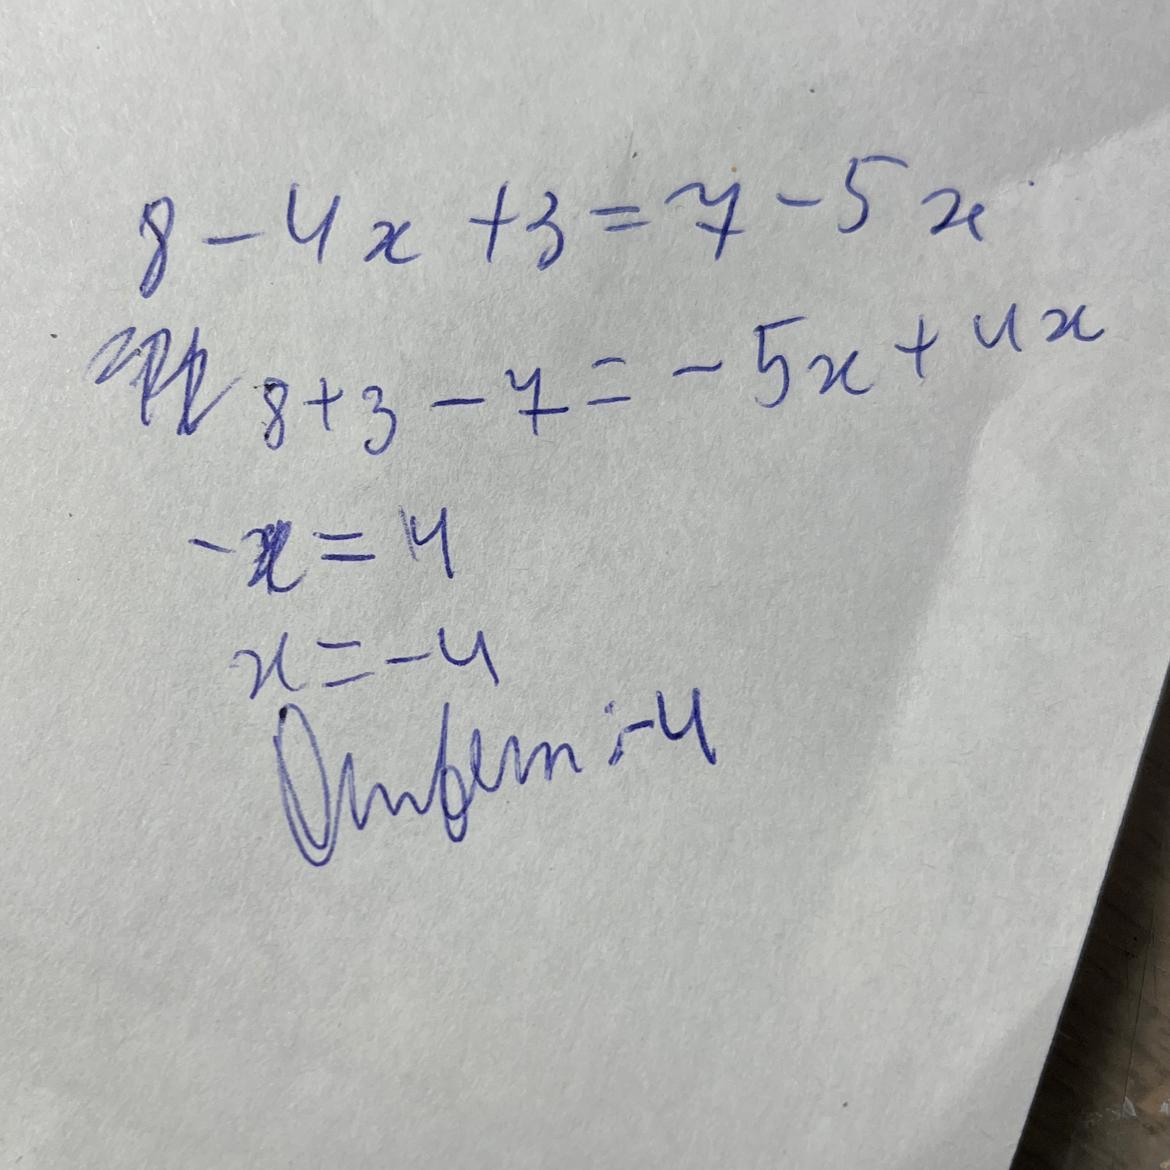 8 - 4x + 3 = 7 - 5x
8 + 3 - 7 = - 5x + 4x
-x = 4
x = -4
Ответ: -4